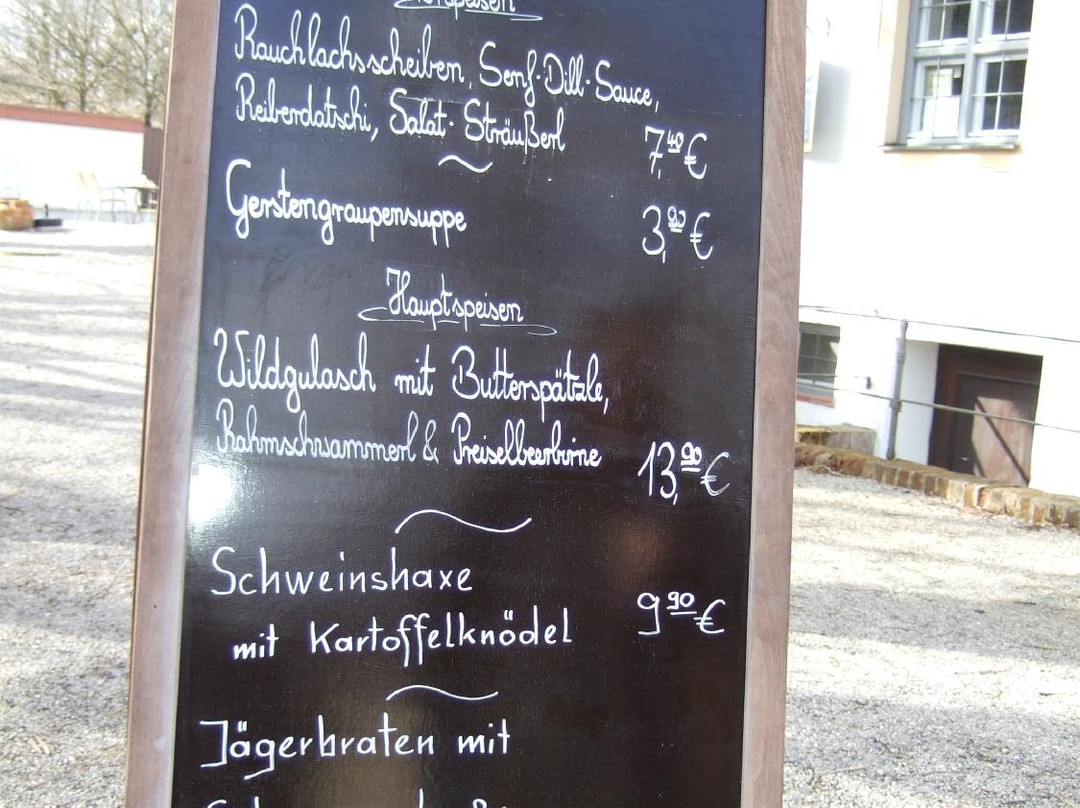 Rauchlachsscheiben, Senf-Dill-Sauce,
Reiberdatschi, Salat-Sträußerl 7,40 €
Gerstengraupensuppe 3,90 €
Hauptspeisen
Wildgulasch mit Butterspätzle,
Rahmschwammerl & Preiselbeerbirne 13,90 €
Schweinshaxe
mit Kartoffelknödel 9,90 €
Jägerbraten mit